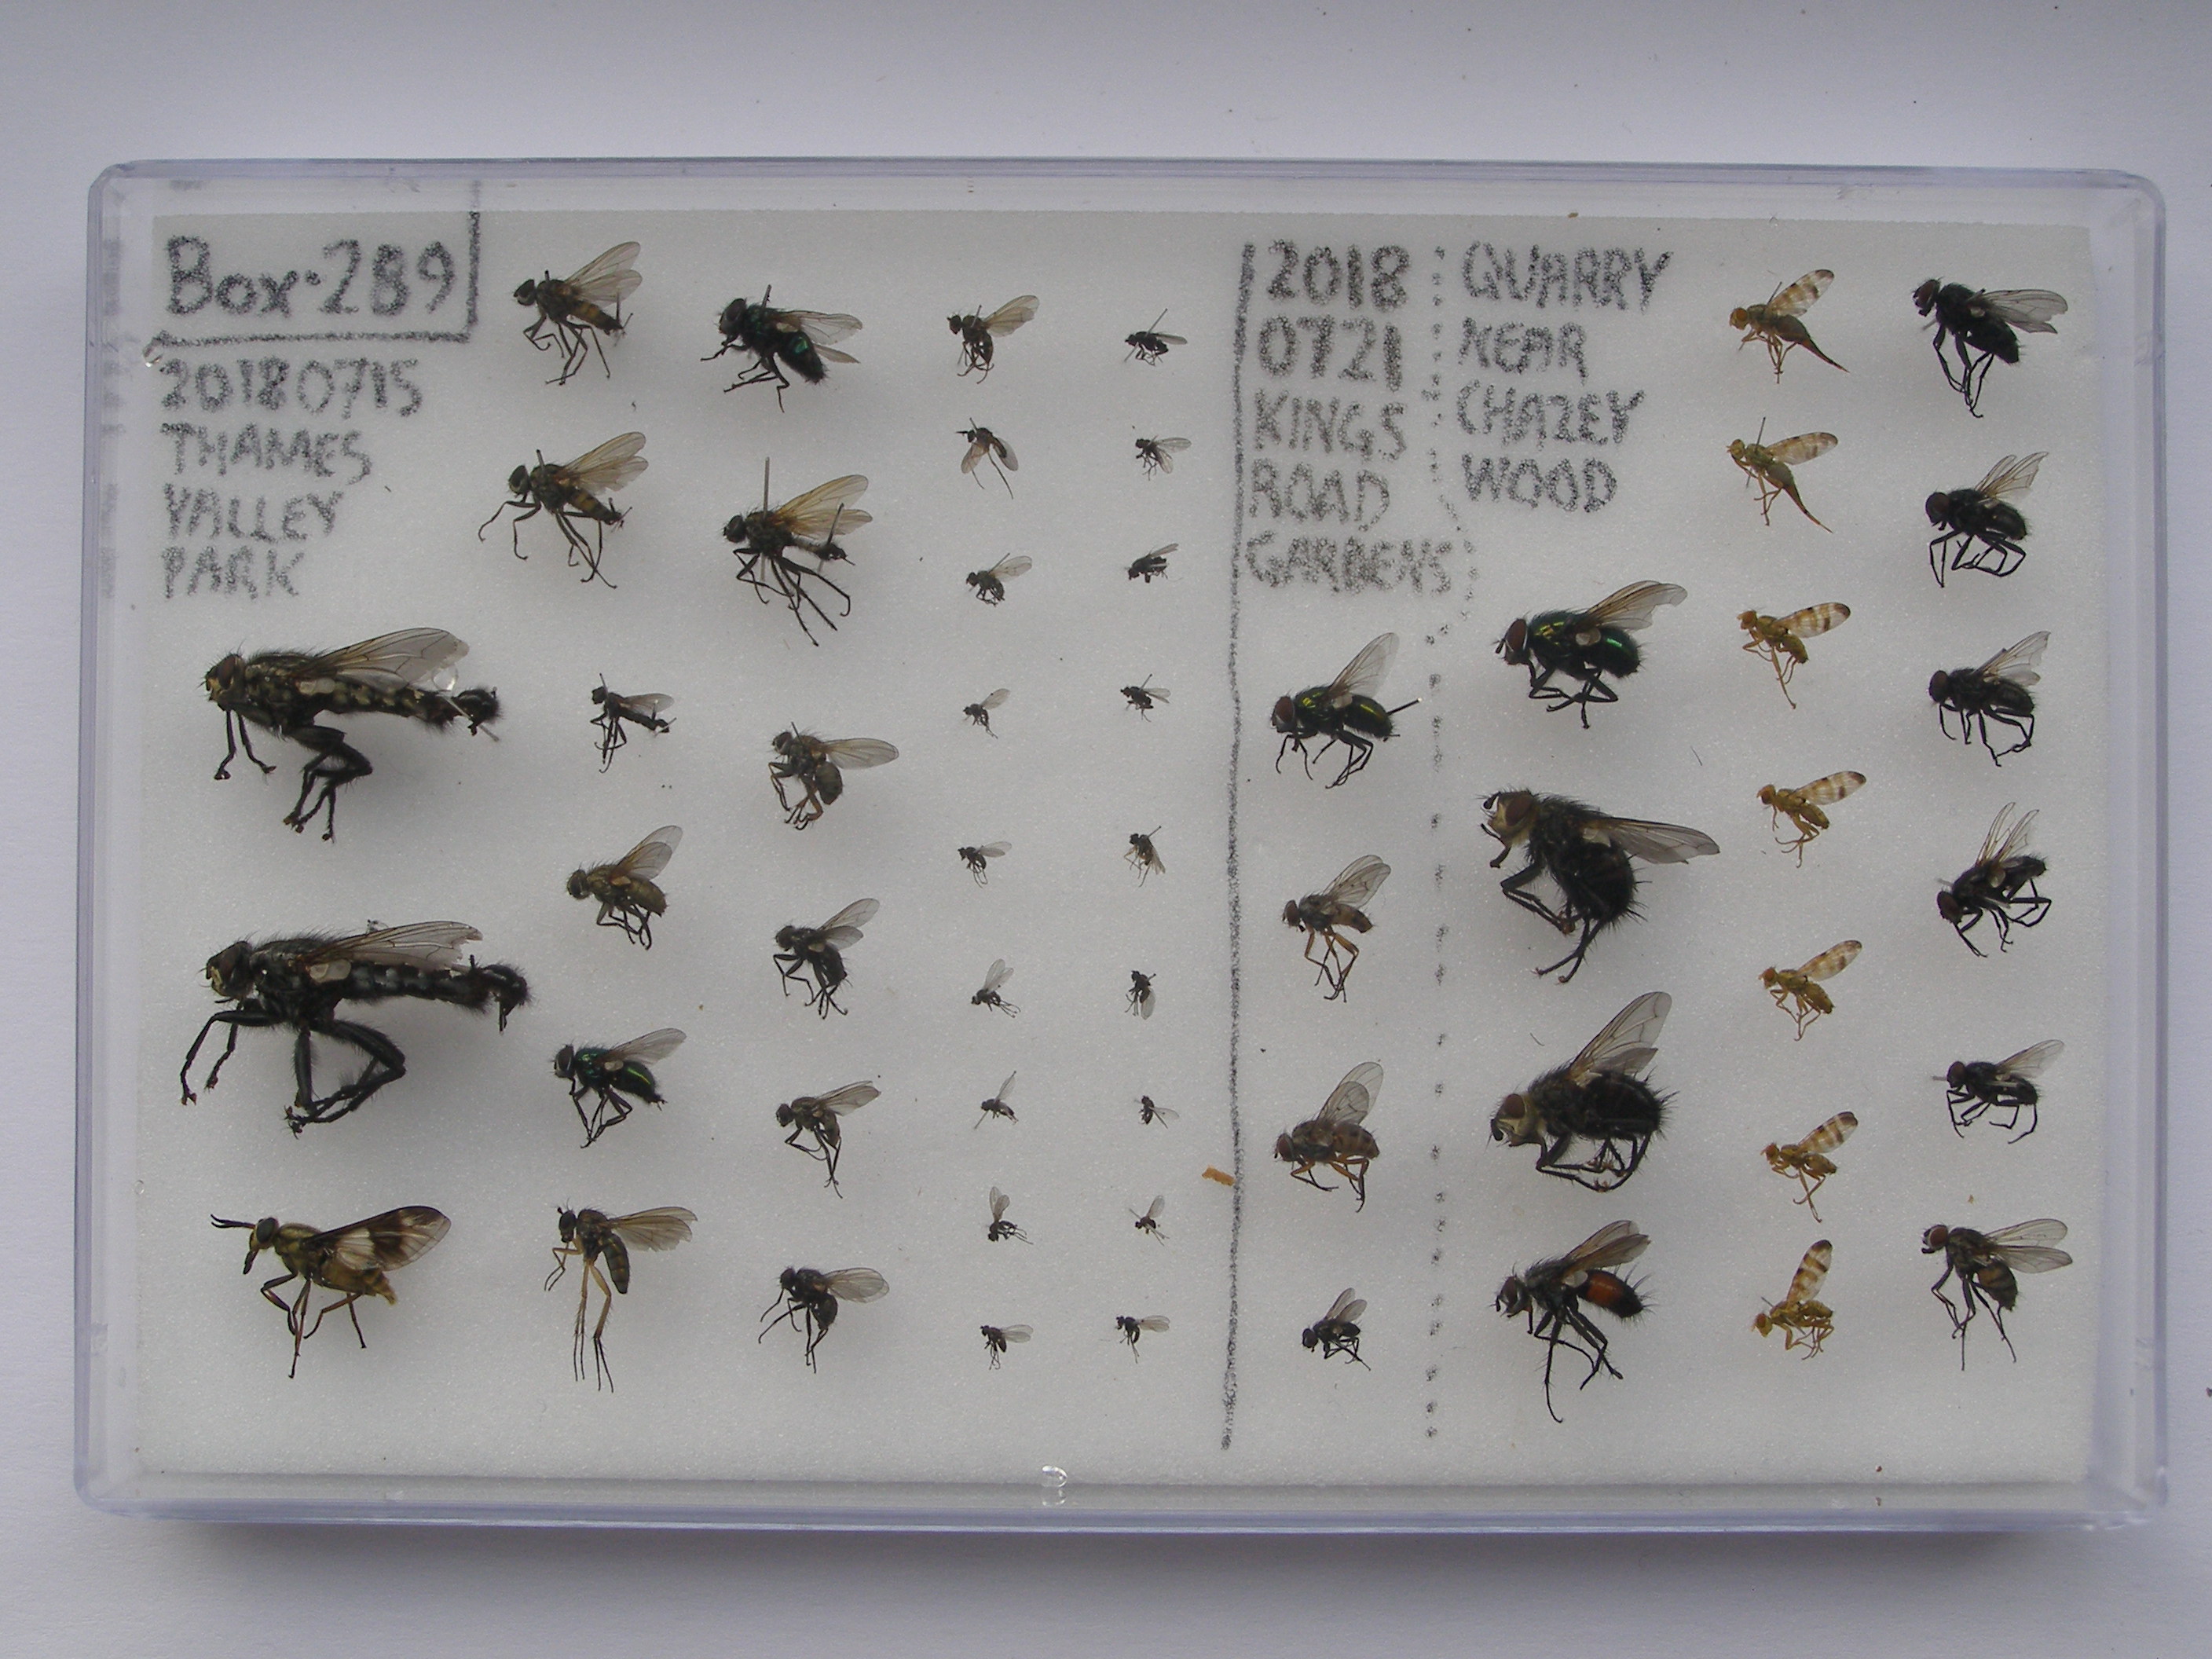 Box·289
20180715
THAMES
VALLEY
PARK
2018
0721
KINGS
ROAD
GARDENS
QUARRY
NEAR
CHAZEY
WOOD